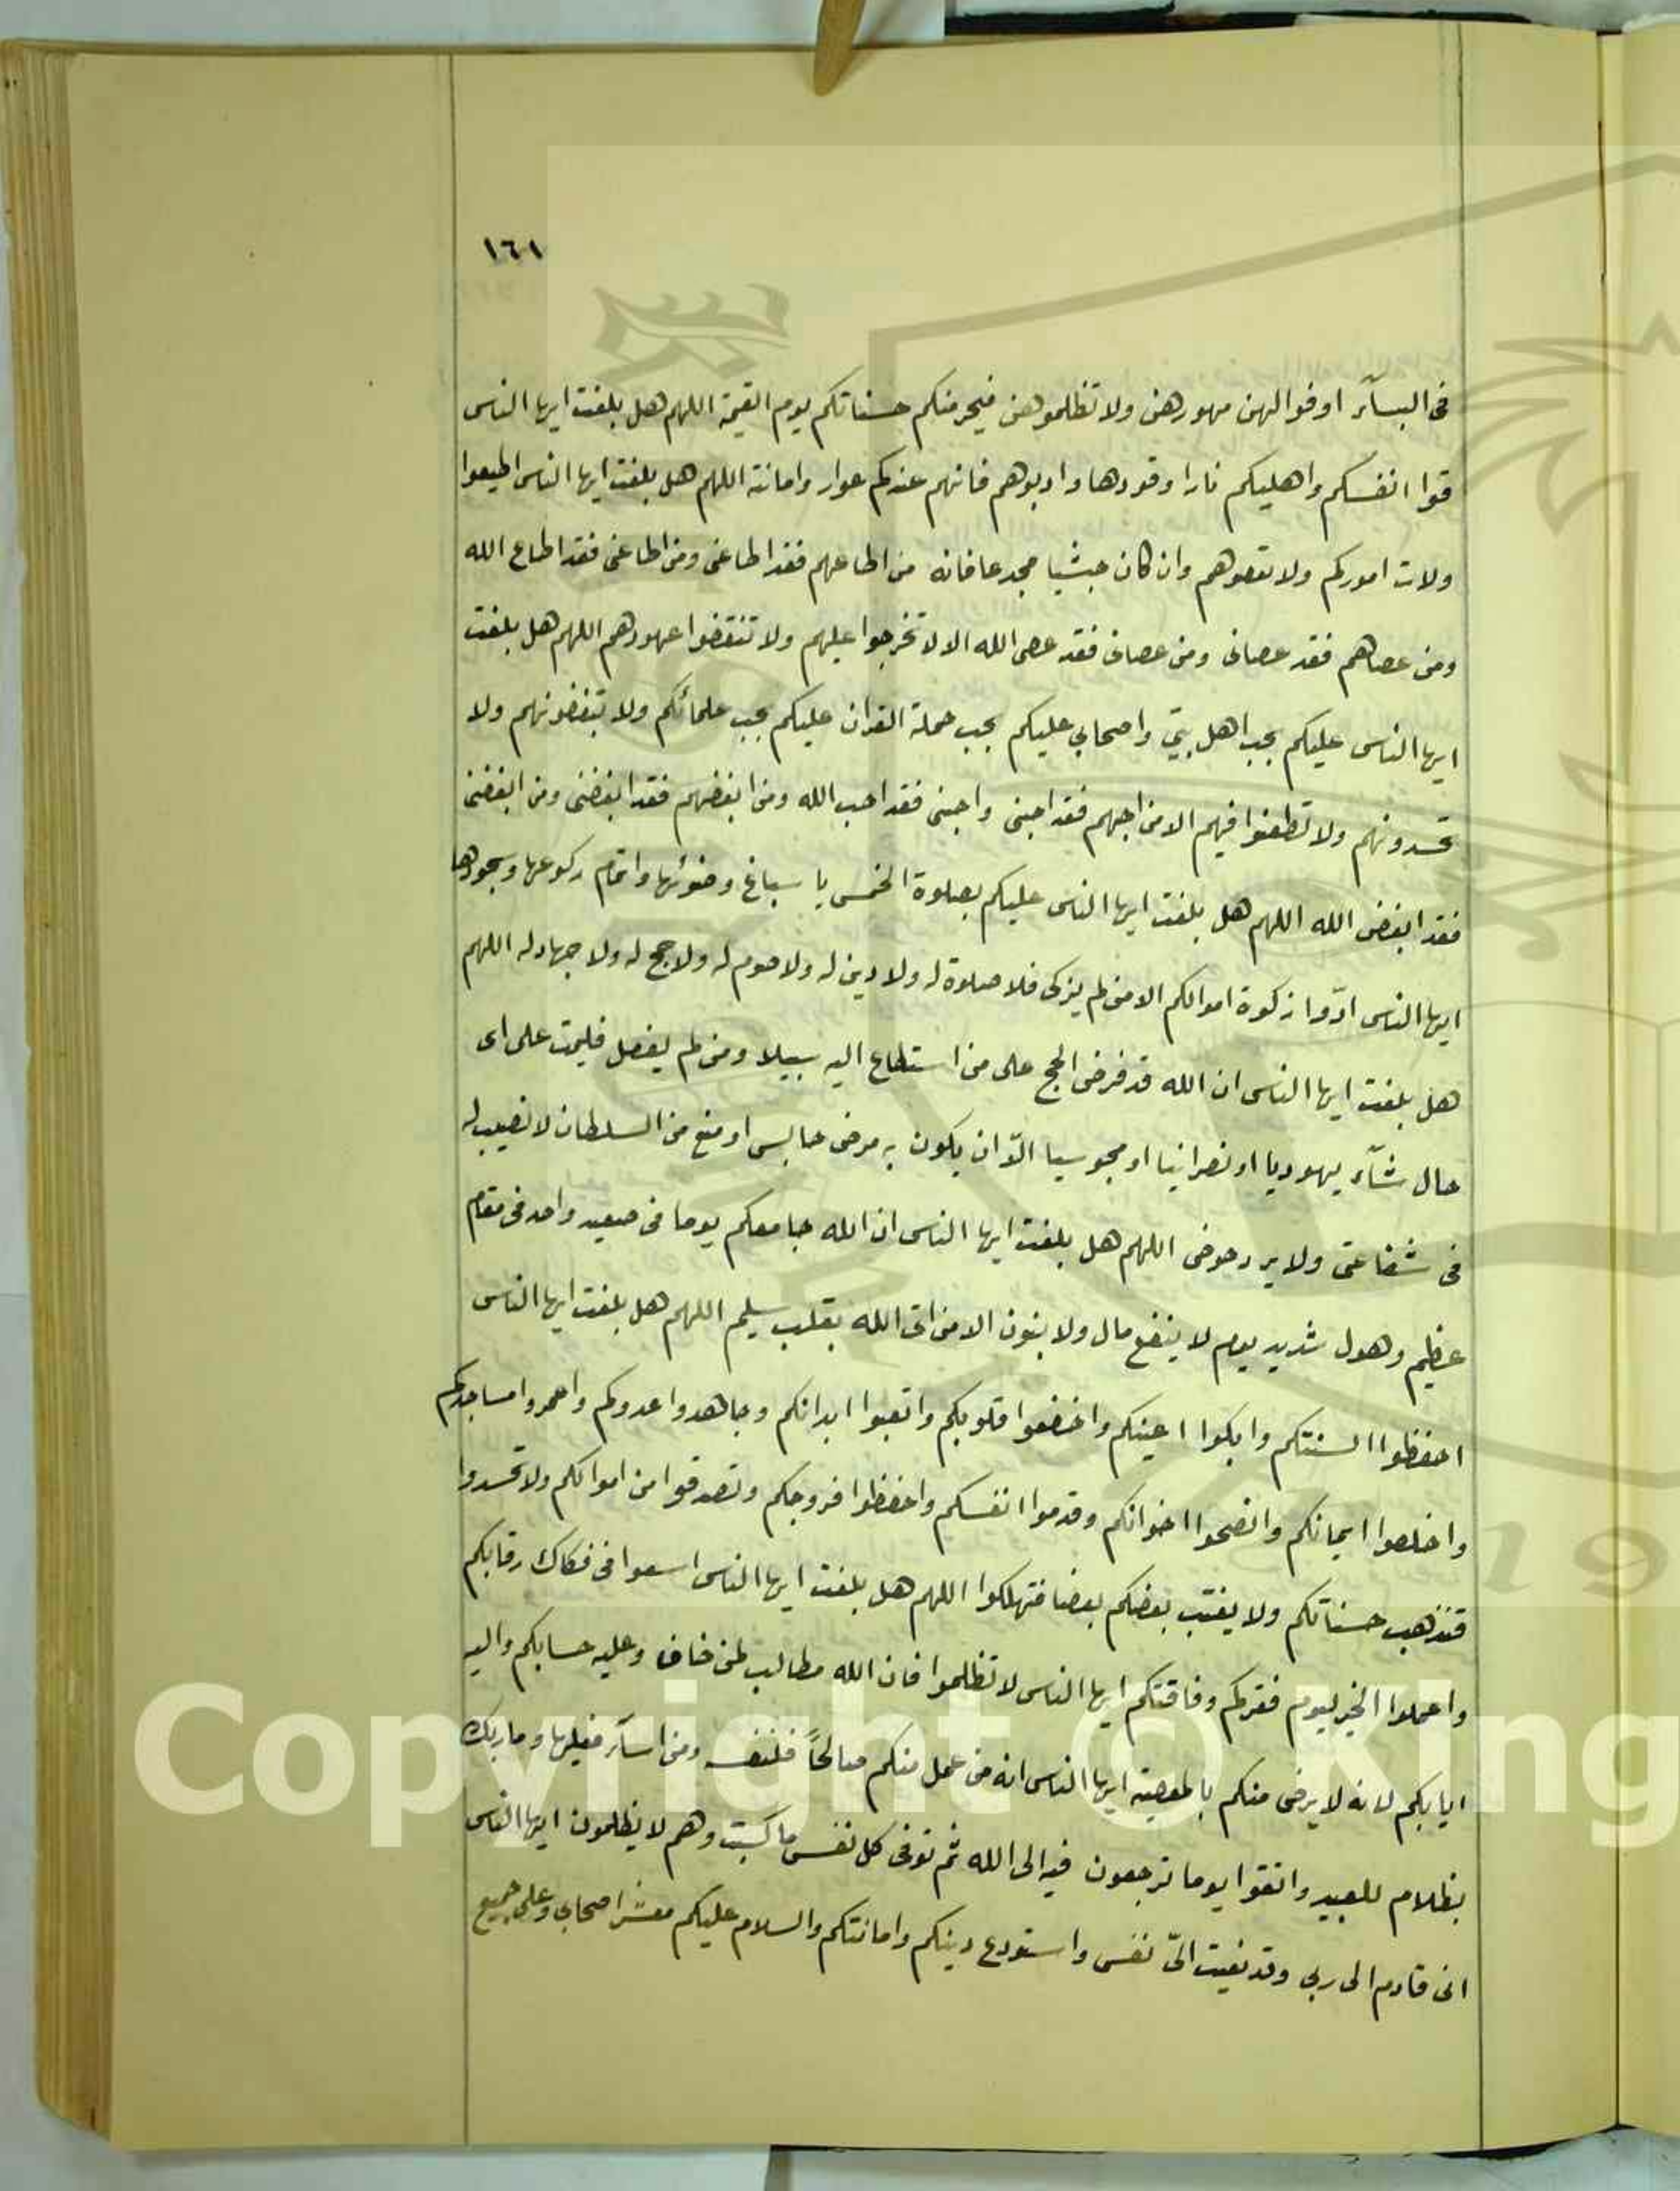 ١٦١
فى النسآء اوفوا لهن مهورهن ولا تظلموهن فيحرمنكم حسناتكم يوم القيمة اللهم هل بلغت ايها الناس
قوا انفسكم واهليكم نارا وقودها وادبوهم فانهم عندكم عوار وامانة اللهم هل بلغت ايها الناس اطيعوا
ولات اموركم ولا تعصوهم وان كان حبشيا مجدعا فانه من اطاعهم فقد اطاعنى ومن اطاعنى فقد اطاع الله
ومن عصاهم فقد عصانى ومن عصانى فقد عصى الله الا لا تخرجوا عليهم ولا تنقضوا عهودهم اللهم هل بلغت
ايها الناس عليكم بحب اهل بيتي واصحابي عليكم بحب حملة القران عليكم بحب علمائكم ولا تبغضونهم ولا
تحسدونهم ولا تطعنوا فيهم الا من احبهم فقد احبنى واحبنى فقد احب الله ومن ابغضهم فقد ابغضنى ومن ابغضنى
فقد ابغض الله اللهم هل بلغت ايها الناس عليكم بصلوة الخمس با سباغ وضوئها واتمام ركوعها وسجودها
ايها الناس ادّوا زكوة اموالكم الا من لم يزكى فلا صلوة له ولا دين له ولا صوم له ولا حج له ولا جهاد له اللهم
هل بلغت ايها الناس ان الله قد فرض الحج على من استطاع اليه سبيلا ومن لم يفعل فليمت على اى
حال شآء يهوديا او نصرانيا او مجوسيا الّا ان يكون به مرض حابس او منع من السلطان لا نصيب له
فى شفاعتى ولا يرد حوضى اللهم هل بلغت ايها الناس ان الله جامعكم يوما فى صعيد واحد فى مقام
عظيم وهول شديد يوم لا ينفع مال ولا بنون الا من اتى الله بقلب سليم اللهم هل بلغت ايها الناس
احفظوا السنتكم وابكوا اعينكم واخضعوا قلوبكم واتعبوا ابدانكم وجاهدوا عدوكم واعمروا مساجدكم
واخلصوا ايمانكم وانصحوا اخوانكم وقدموا انفسكم واحفظوا فروجكم وتصدقوا من اموالكم ولا تحسدوا
فتذهب حسناتكم ولا يغتب بعضكم بعضا فتهلكوا اللهم هل بلغت ايها الناس اسعوا فى فكاك رقابكم
واعملوا الخير ليوم فقركم وفاقتكم ايها الناس لا تظلموا فان الله مطالب لمن خاف وعليه حسابكم واليه
ايابكم لانه لا يرضى منكم بالمعصية ايها الناس انه من عمل منكم صالحاً فلنفسه ومن اسآء فعليها وما ربك
بظلام للعبيد واتقوا يوما ترجعون فيه الى الله ثم توفى كل نفس ما كسبت وهم لا يظلمون ايها الناس
انى قادم الى ربى وقد نعيت الىّ نفسى واستودع دينكم وامانتكم والسلام عليكم معشر اصحابى وعلى جميع
Copyright © King